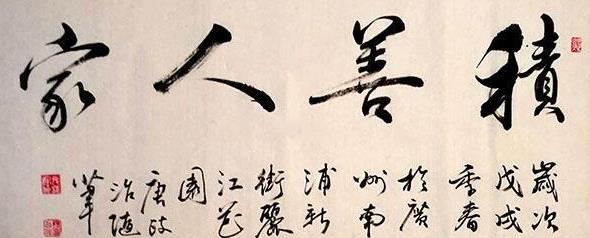 積善人家
歲次
戊戌
季春
於廣
州南
浦新
街麗
江花
園
唐
治隨
筆